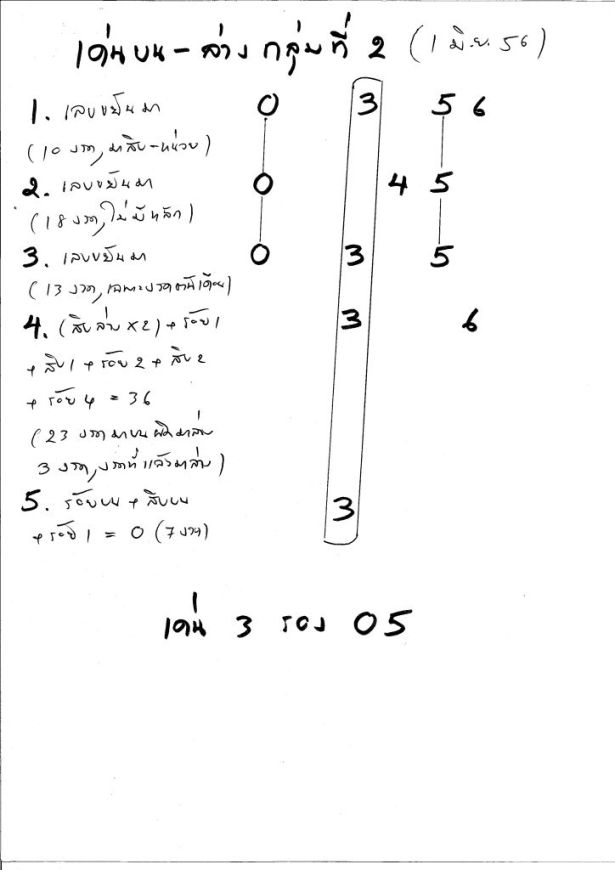 เด่นบน - ล่าง กลุ่มที่ 2 (1 มิ.ย. 56)
1. เลขขยันมา 0 3 5 6
(10 งวด, มาสิบ-หน่วย)
2. เลขขยันมา 0 4 5
(18 งวด, ไม่มีหลัก)
3. เลขขยันมา 0 3 5
(13 งวด, เฉพาะงวดต้นเดือน)
4. (สิบล่าง x2) + ร้อย 1 3 6
+ สิบ 1 + ร้อย 2 + สิบ 2
+ ร้อย 4 = 36
(23 งวด มาบน ผิดมาล่าง
3 งวด, งวดที่แล้วมาล่าง)
5. ร้อยบน + สิบบน 3
+ ร้อย 1 = 0 (7 งวด)
เด่น 3 รอง 05